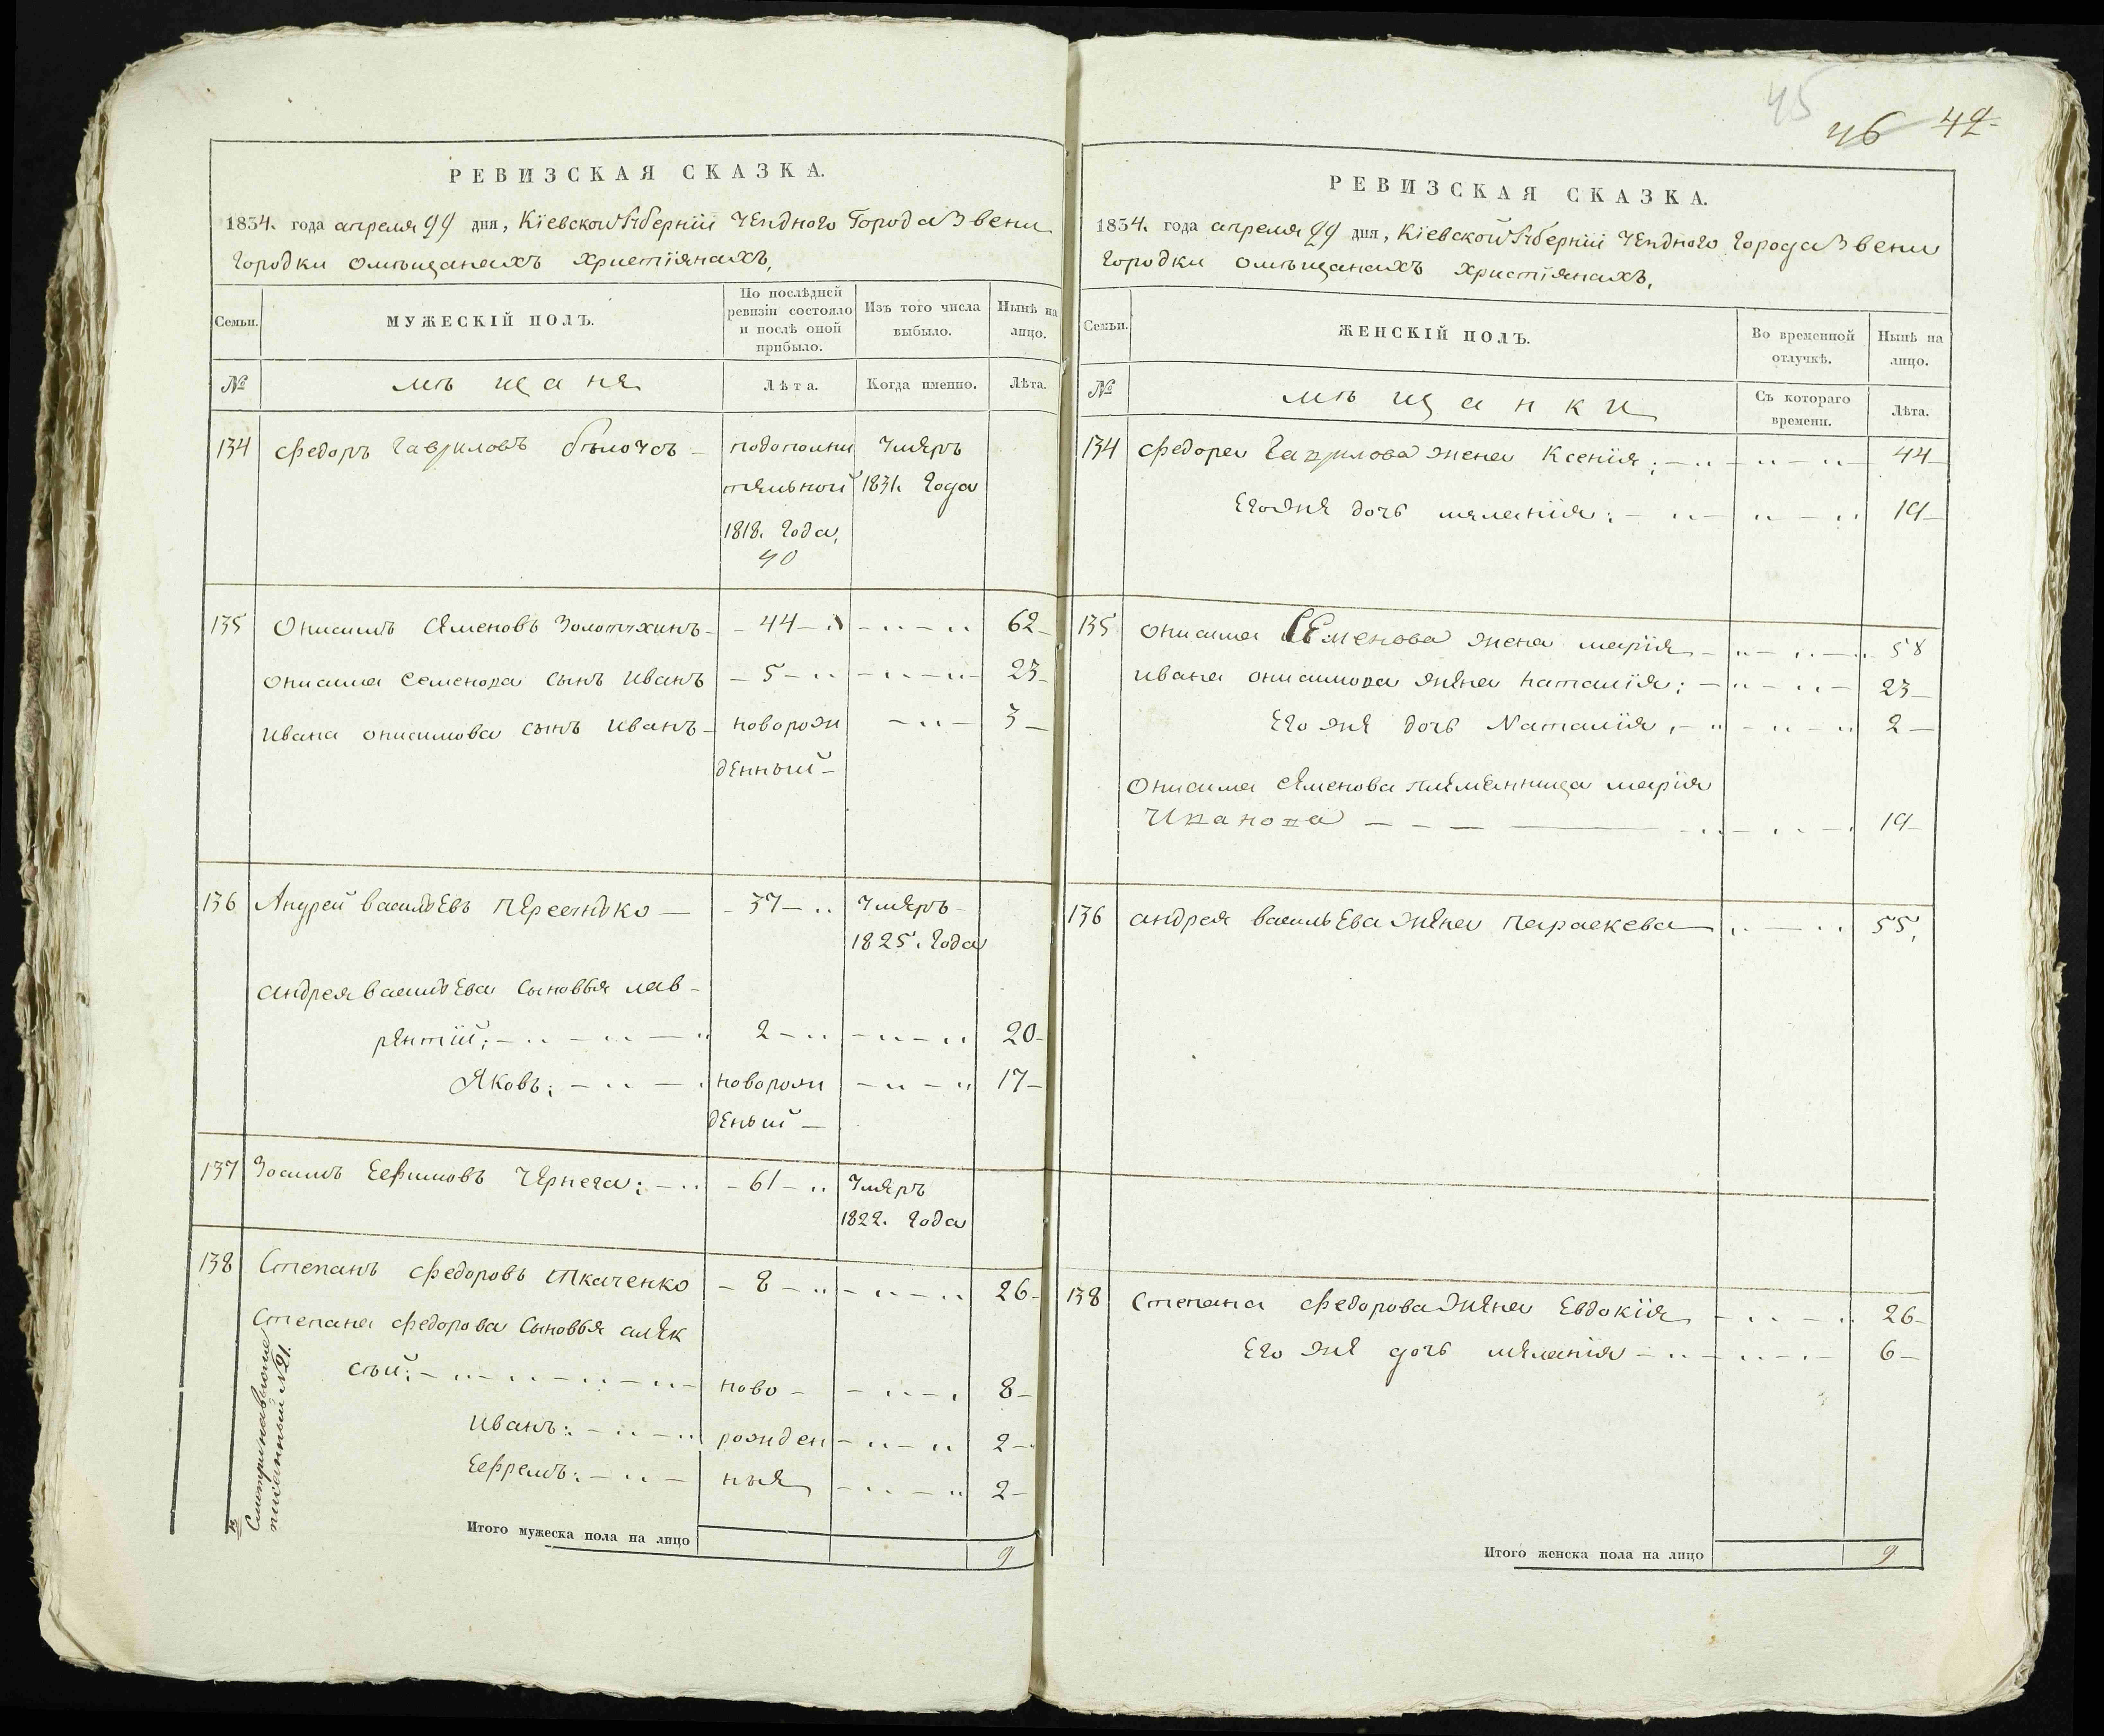 45
46 42
РЕВИЗСКАЯ СКАЗКА.
1834. года апреля 29 дня, Кіевской Губерніи Уезднаго Города Звени
городки омѣщанахъ христіянахъ,
Семьи. МУЖЕСКІЙ ПОЛЪ. По послѣдней ревизіи состояло и послѣ оной прибыло. Изъ того числа выбыло. Нынѣ на лицо.
№ мѣщаня Лѣта. Когда именно. Лѣта.
134 Федоръ Гавриловъ подополни Умеръ
тельной 1831. Года
1818. Года,
40
135 Онисимъ Семеновъ Золотухинъ 44 62
Онисима Семенова сынъ Иванъ 5 23
Ивана Онисимова сынъ Иванъ новорож 3
денный
136 Андрей Васильевъ 37 Умеръ
1825. Года
Андрея Васильева сыновья Лав
рентій; 2 20
Яковъ; новорож 17
деный
137 Зосимъ Ефимовъ Чернега; 61 Умеръ
1822. Года
138 Степанъ Федоровъ Ткаченко 8 26
Степана Федорова сыновья Алек
сѣй; ново 8
Иванъ: рожден 2
Ефремъ: ныя 2
Смотри наволоте
писанный №21.
Итого мужеска пола на лицо 9
РЕВИЗСКАЯ СКАЗКА.
1834. года апреля 29 дня, Кіевской Губерніи Уезднаго Города Звени
городки омѣщанахъ христіянахъ,
Семьи. ЖЕНСКІЙ ПОЛЪ. Во временной отлучкѣ. Нынѣ на лицо.
№ мѣщанки Съ котораго времени. Лѣта.
134 Федора Гаврилова жена Ксенія; 44
Егоже дочь Меланія: 19
135 Онисима Семенова жена Марія 58
Ивана Онисимова жена Наталія; 23
Его же дочь Наталія, 2
Онисима Семенова племянница Марія
Иванова 19
136 Андрея Васильева жена Параскева 55,
138 Степана Федорова жена Евдокія 26
Его же дочь Меланія 6
Итого женска пола на лицо 9